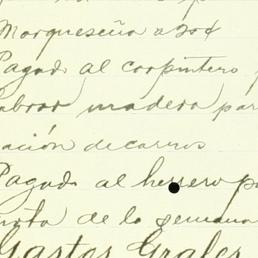 Marqueseña a 20¢
Pagado al carpintero p
labrar madera par
ación de carros
Pagado al herrero po
de la semana
Gastos Grales